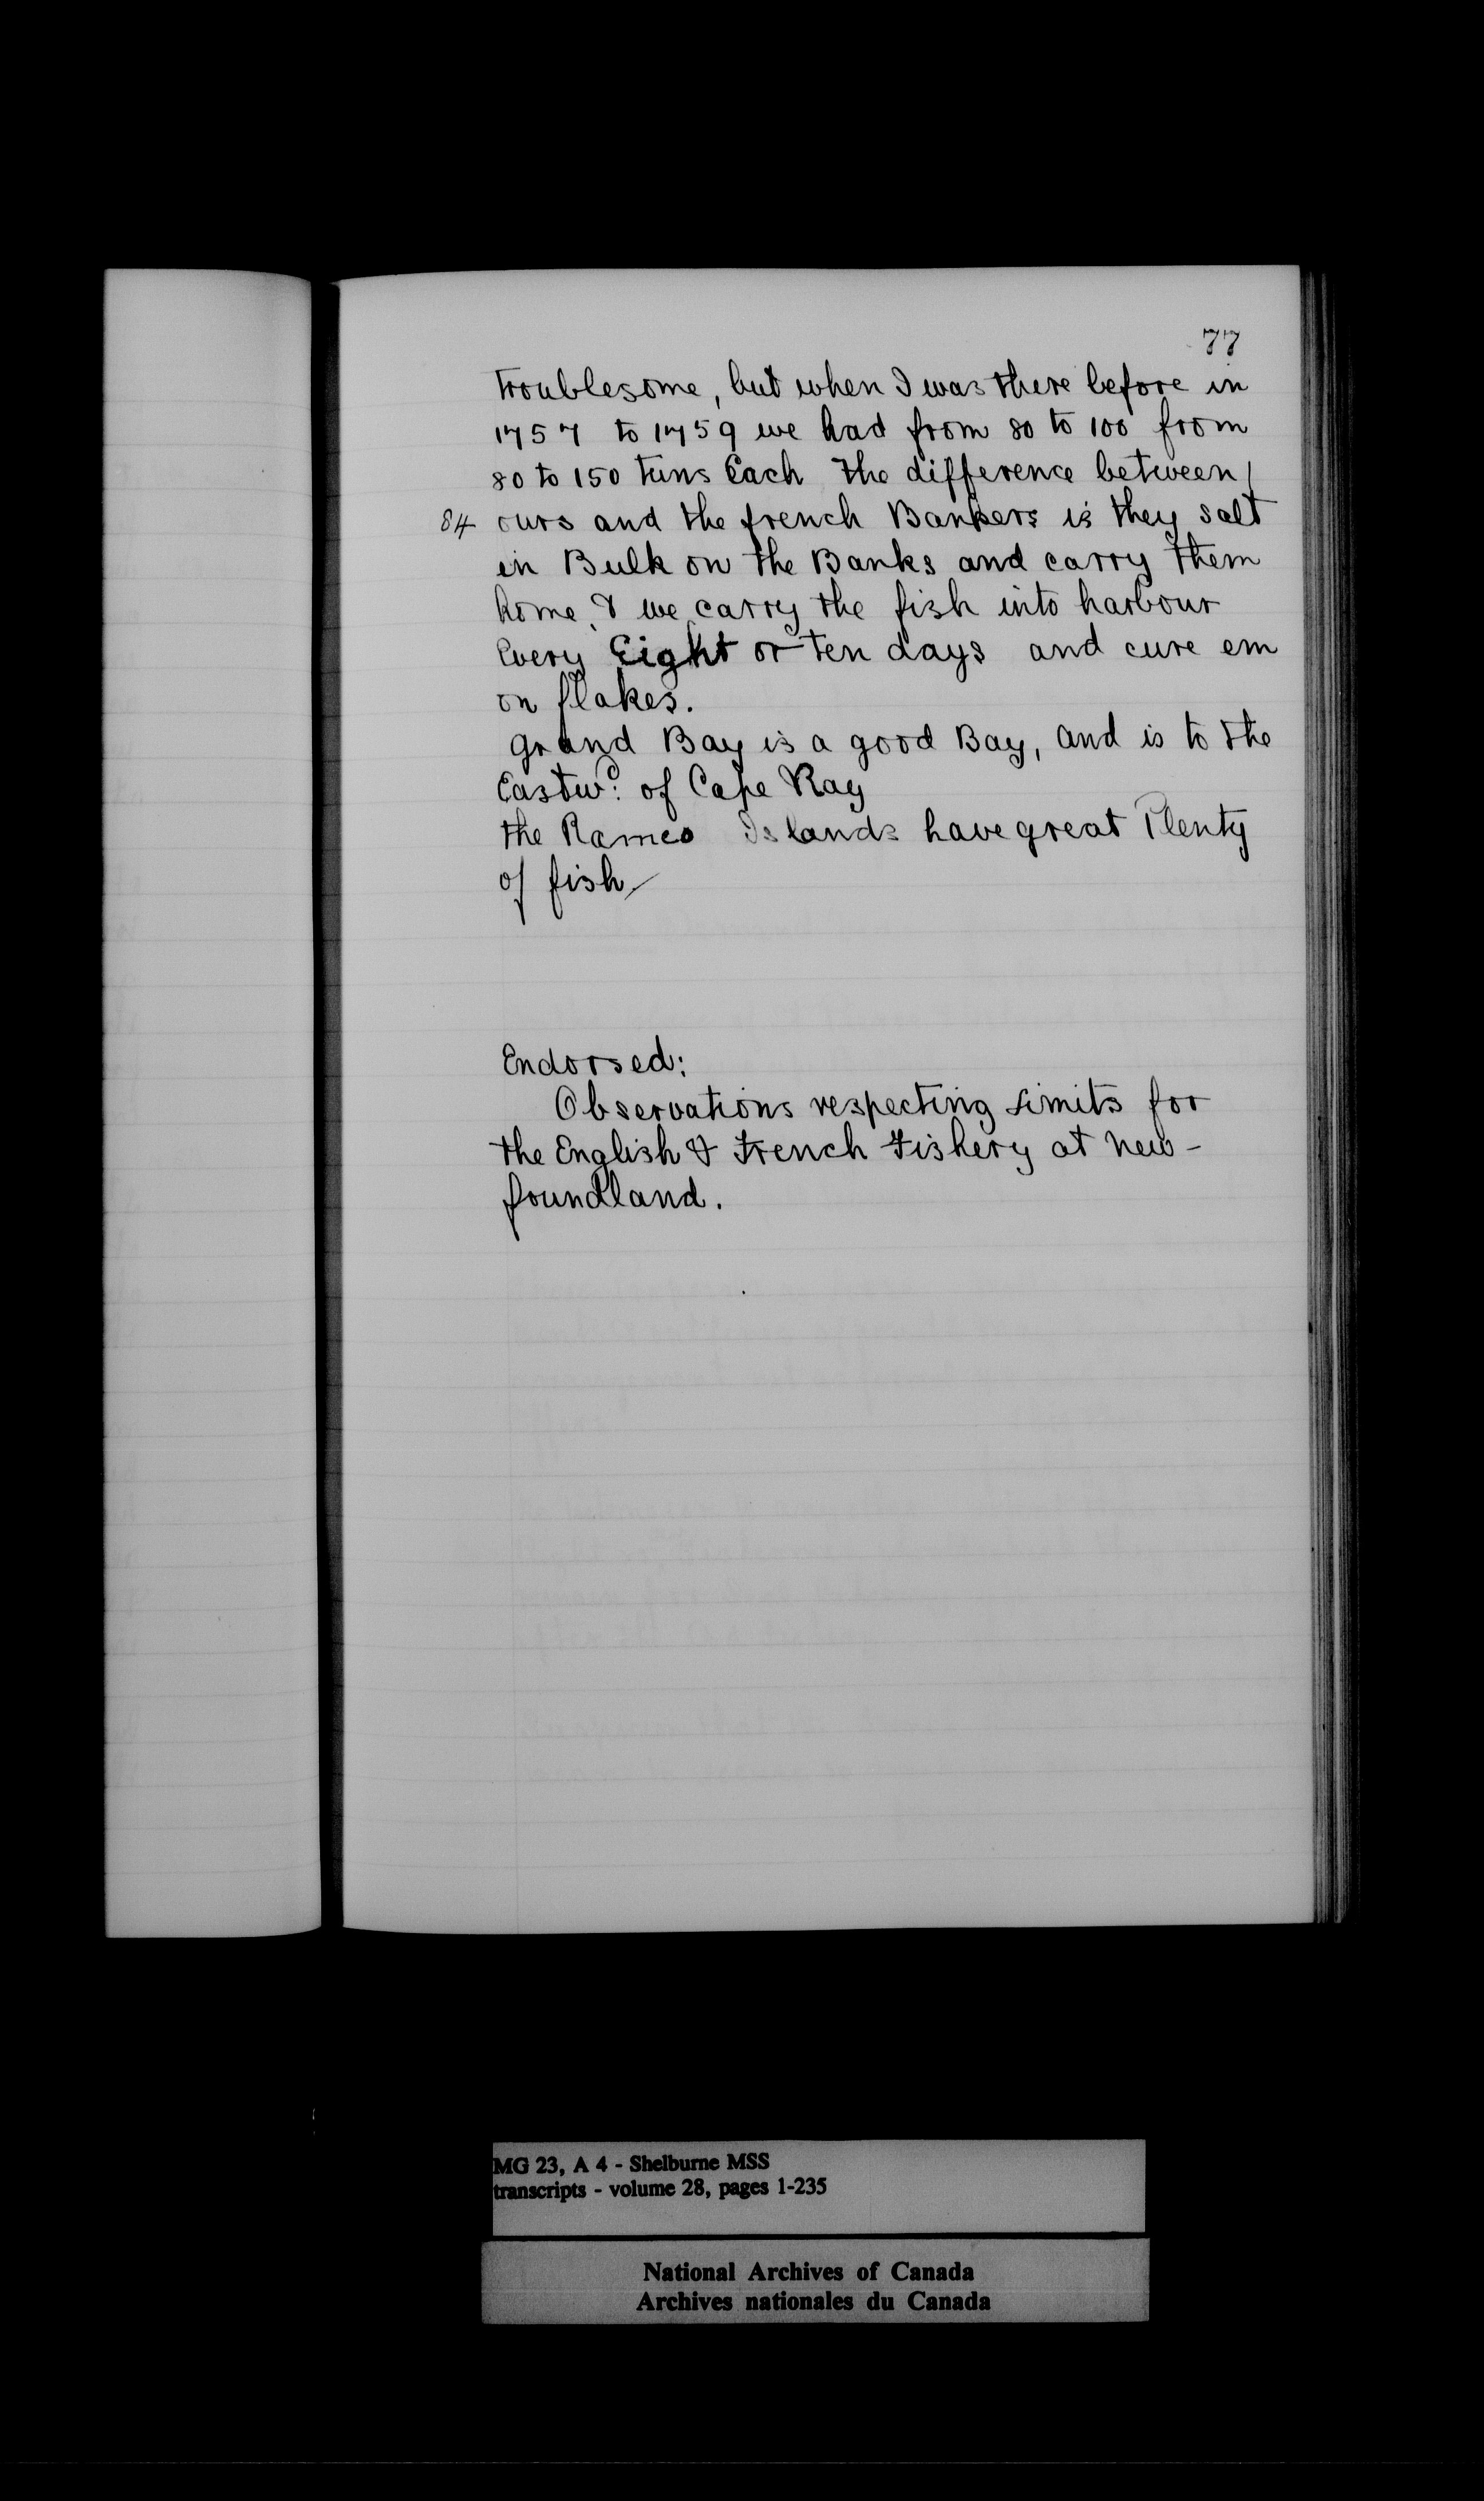 77
troublesome, but when I was there before in
1757 to 1759 we had from 80 to 100 from
80 to 150 tuns Each the difference between /
84 ours and the french Bankers is they salt
in Bulk on the Banks and carry them
home, & we carry the fish into harbour
Every Eight or ten days and cure em
on flakes.
Grand Bay is a good Bay, and is to the
Eastwd: of Cape Ray
the Rameo Islands have great Plenty
of fish
Endorsed:
Observations respecting Limits for
the English & French Fishery at New-
foundland.
MG 23, A 4 - Shelburne MSS
transcripts - volume 28, pages 1-235
National Archives of Canada
Archives nationales du Canada